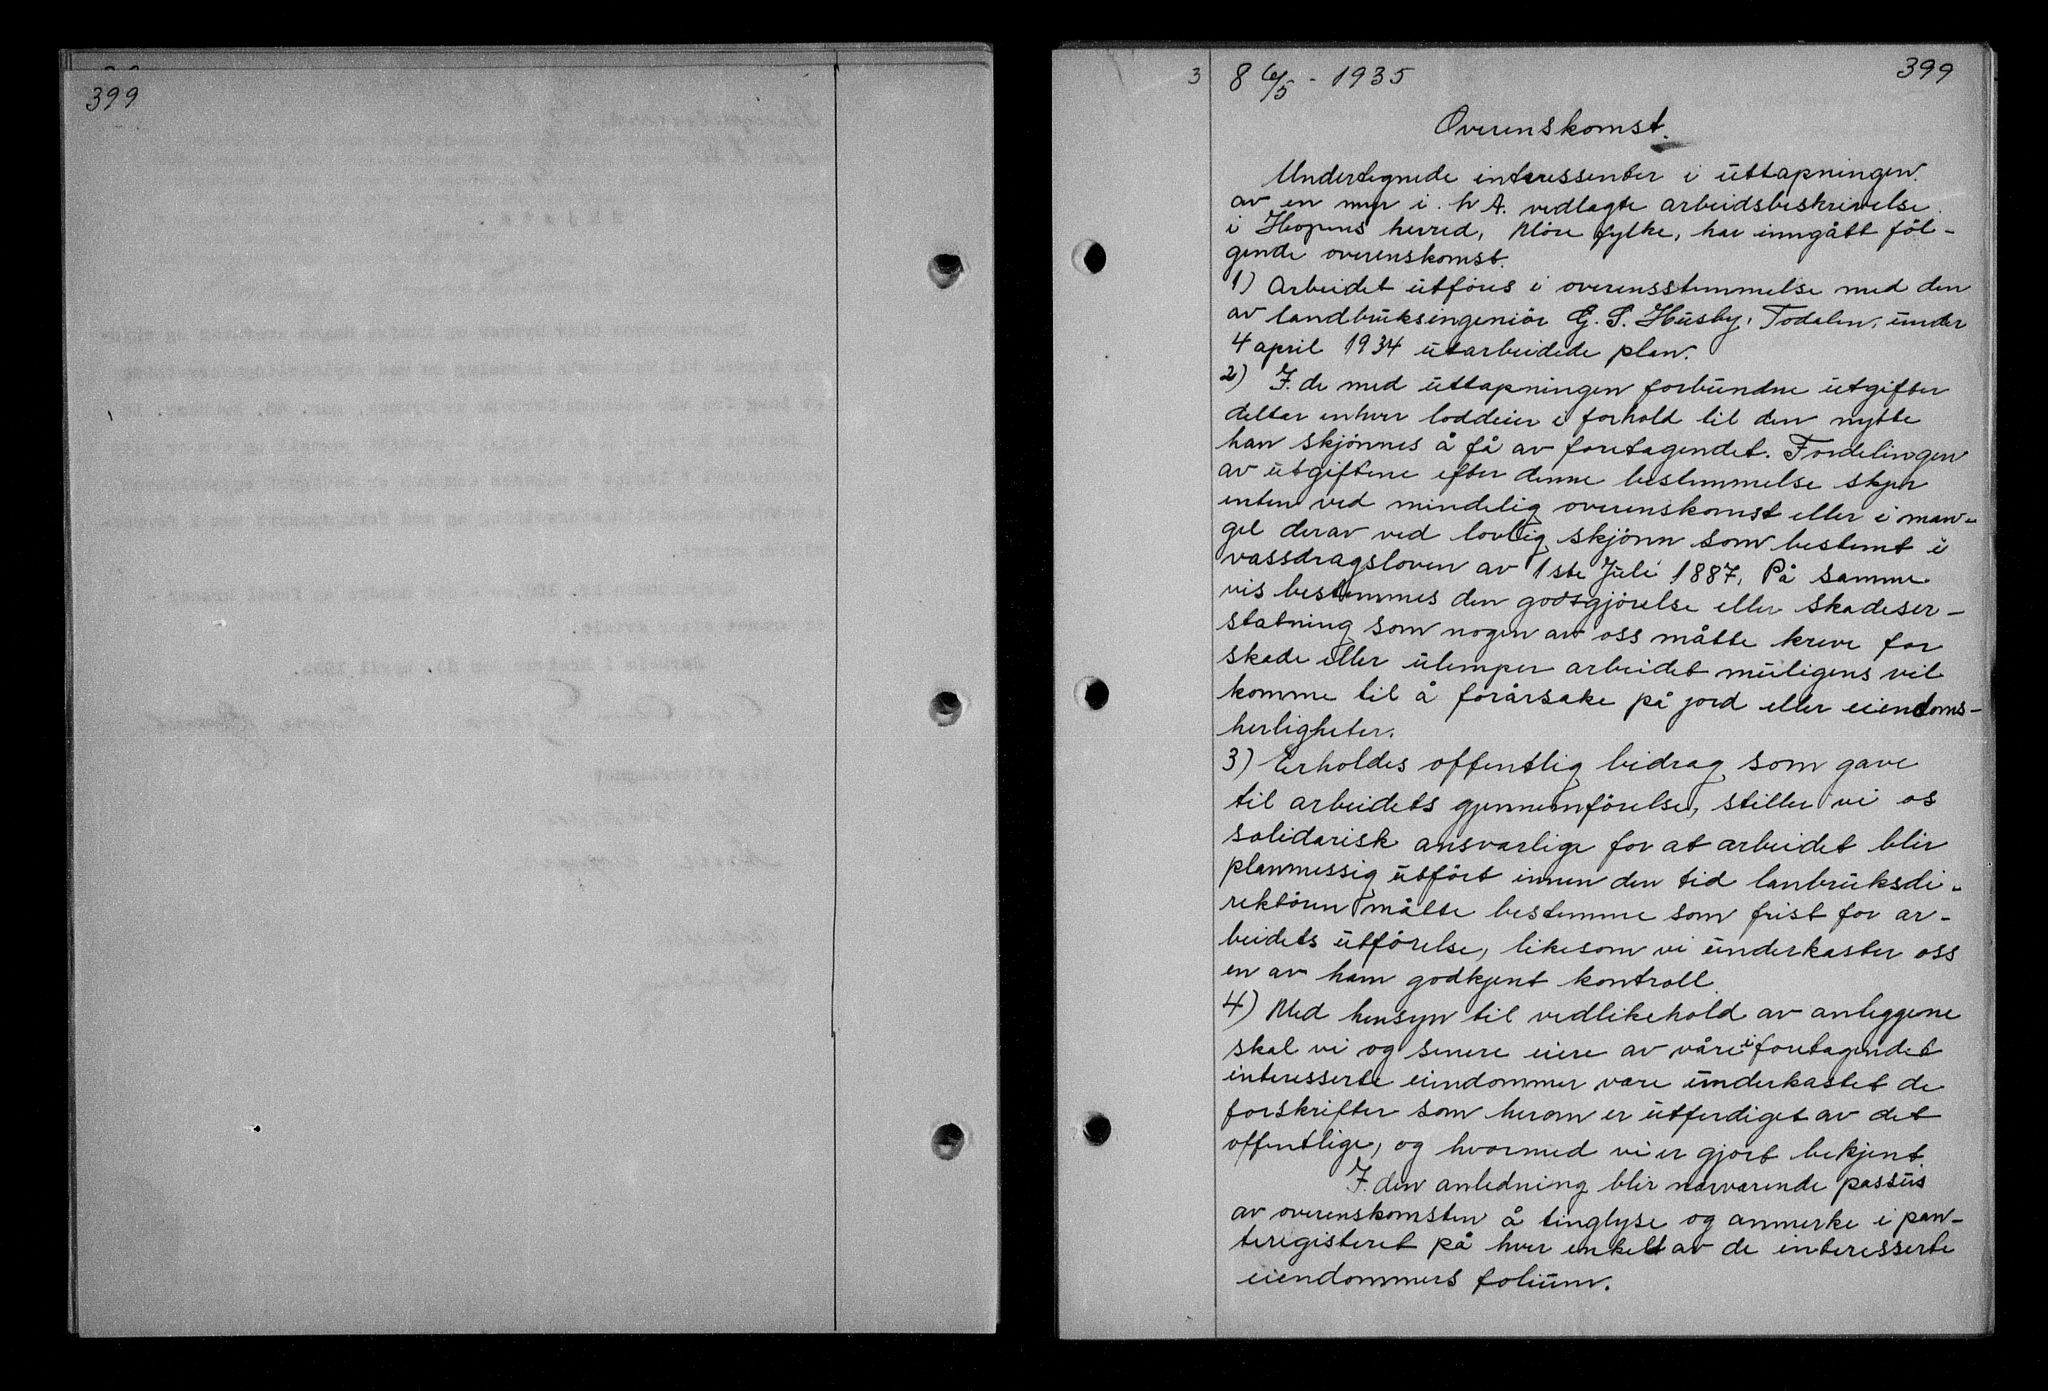 399
3
8 6/5 - 1935
399
Overenskomst.
Undertegnede interessenter i uttapningen
av en myr i h A. vedlagte arbeidsbeskrivelse
i Hopens herred, Möre fylke, har inngått föl-
gende overenskomst.
1) Arbeidet utföres i overensstemmelse med den
av landbruksingeniör G. S. Husby, Todalen, under
4 april 1934 utarbeidede plan.
2) I de med uttapningen forbundne utgifter
deltar enhver loddeier i forhold til den nytte
han skjönnes å få av foretagendet. Fordelingen
av utgiftene efter denne bestemmelse skjer
enten ved mindelig overenskomst eller i man-
gel derav ved lovlig skjönn som bestemt i
vassdragsloven av 1ste Juli 1887. På samme
vis bestemmes den godtgjörelse eller skadeser-
statning som nogen av oss måtte kreve for
skade eller ulemper arbeidet muligens vil
komme til å forårsake på jord eller eiendoms-
herligheter.
3) Erholdes offentlig bidrag som gave
til arbeidets gjennemförelse, stiller vi os
solidarisk ansvarlige for at arbeidet blir
planmessig utfört innen den tid lanbruksdi-
rektören måtte bestemme som frist for ar-
beidets utförelse, likesom vi underkaster oss
en av ham godkjent kontroll.
4) Med hensyn til vedlikehold av anleggene
skal vi og senere eiere av våre i foretagendet
interesserte eiendommer være underkastet de
forskrifter som herom er utferdiget av det
offentlige, og hvormed vi er gjort bekjent.
I den anledning blir nærværende passus
av overenskomsten å tinglyse og anmerke i pan-
teregisteret på hver enkelt av de interesserte
eiendommers folium.